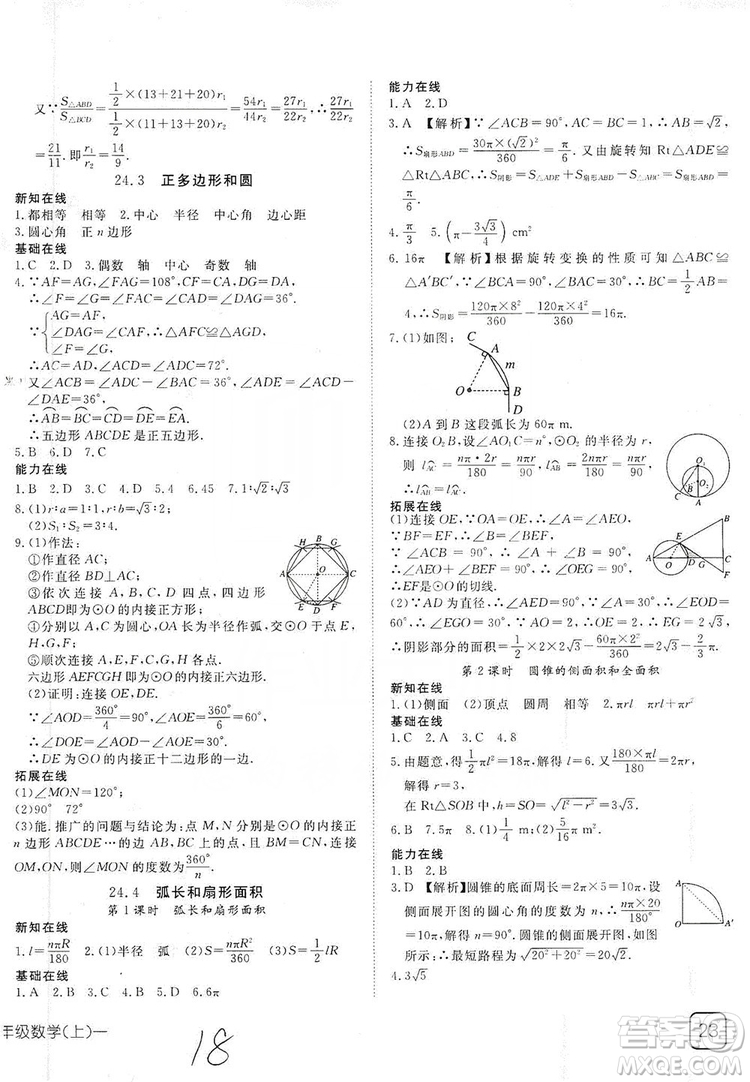 又∵S△ABD/S△BCD=(1/2×(13+21+20)r₁)/(1/2×(11+13+20)r₂)=54r₁/44r₂=27r₁/22r₂,∴27r₁/22r₂
=21/11.即r₁/r₂=14/9.
24.3 正多边形和圆
新知在线
1.都相等 相等 2.中心 半径 中心角 边心距
3.圆心角 正n边形
基础在线
1.C 2.D 3.偶数 轴 中心 奇数 轴
4.∵AF=AG,∠FAG=108°,CF=CD,GD=DA,
∴∠F=∠AGF=36°,∠DAG=∠ADG=36°.
∵{AF=AG,
∠DAG=∠AGF,∴△AFC≌△AGD.
∠F=∠G,
∴AC=AD.∴∠ACD=∠ADC=72°.
又∠ACB=∠ADC-∠CAD=36°,∠ACE=
∠DAE=36°,
∴AB⌒=BC⌒=CD⌒=DE⌒=EA⌒.
∴五边形ABCDE是正五边形.
5.B 6.D 7.C
能力在线
1.B 2.D 3.C 4.D 5.4 6.45 7.1:√2:√3
8.(1)r:a=1:1,r:b=√3:2.
(2)S₁:S₂=3:4.
9.(1)作法:
①作直径AC;
②作直径BD⊥AC;
③依次连接A、B、C、D四点,四边形
ABCD即为⊙O的内接正方形;
④分别以A、C为圆心,OA长为半径作弧,交⊙O于E、H、F、G;
⑤顺次连接A、E、F、C、G、H各点.
六边形AEFCGH即为⊙O的内接正六边形.
(2)证明:连接OE,DE.
∵∠AOD=360°/4=90°,∠AOE=360°/6=60°,
∴∠DOE=∠AOD-∠AOE=90°-60°=30°.
∴DE为⊙O的内接正十二边形的一边.
拓展在线
(1)∠MON=120°;
(2)90° 72°
(3)能.推广的问题与结论为:点M,N分别是⊙O的内接正
n边形的边AB,BC上的点,且BM=CN,连接
OM,ON,则∠MON的度数为360°/n.
24.4 弧长和扇形面积
第1课时 弧长和扇形面积
新知在线
1.l=nπR/180 2.(1)半径 弧 (2)S=nπR²/360 (3)S=1/2lR
基础在线
1.A 2.B 3.C 4.A 5.D 6.6π
年级数学(上)一
18
能力在线
1.A 2.D
3.A 【解析】∵∠ACB=90°,AC=BC=1,∴AB=√2,
∴S扇形ABD=30×π×(√2)²/360=π/6.又∵Rt△ABC
≌Rt△ADE,∴S阴影=S扇形ABD=
π/6.
4.π/3 5.(π-3√3/4)cm²
6.16π 【解析】根据旋转变换的性质可知
△ABC≌△A′BC′,∵∠BCA=90°,∠BAC=30°,BC=1/2AB=
4,∴S阴影=120π×8²/360-120π×4²/360=16π.
7.(1)如图:
C A m O B D
(2)A到B这段弧长为60π m.
8.连接O₂B,设∠AO₁C=n°,⊙O₂的半径为r,
则l AC⌒=nπ·2r/180=nπr/90,l AB⌒=2n·πr/180=nπr/90,
∴l AC⌒=l AB⌒.
拓展在线
(1)连接OE,∵OA=OE,∴∠A=∠AEO,∵
BF=EF,∴∠B=∠BEF,∵∠ACB=90°,
∴∠A+∠B=90°,∴∠AEO+∠BEF=90°,
∴∠OEF=90°,
∴EF是⊙O的切线.
(2)∵AD为直径,∴∠AED=90°,∵∠A=30°,∴∠EDO
=60°,∴∠EOD=60°,
∴阴影部分的面积=
第2课时 圆锥的侧面积和全面积
新知在线
1.(1)侧面 (2)顶点 圆周 相等 2.πrl πrl πr²
基础在线
1.C 2.A 3.C 4.8
5.由题意,得S侧=1/2πl²=18π,解得l=6.又180×πl/180=2πr,
解得r=3.
在Rt△SOB中,h=SO=√l²-r²=3√3.
6.B 7.5π 8.(1)2 cm.
能力在线
1.B 2.C
3.D 【解析】圆锥的底面周长=2π×5=10π,设
侧面展开图的圆心角的度数为n.∴nπ×20/180=
10π,解得n=90,圆锥的侧面展开图,
如图所示:∴最短路程为√20²+20²=20√2.
4.3√5
23
MXQE.COM